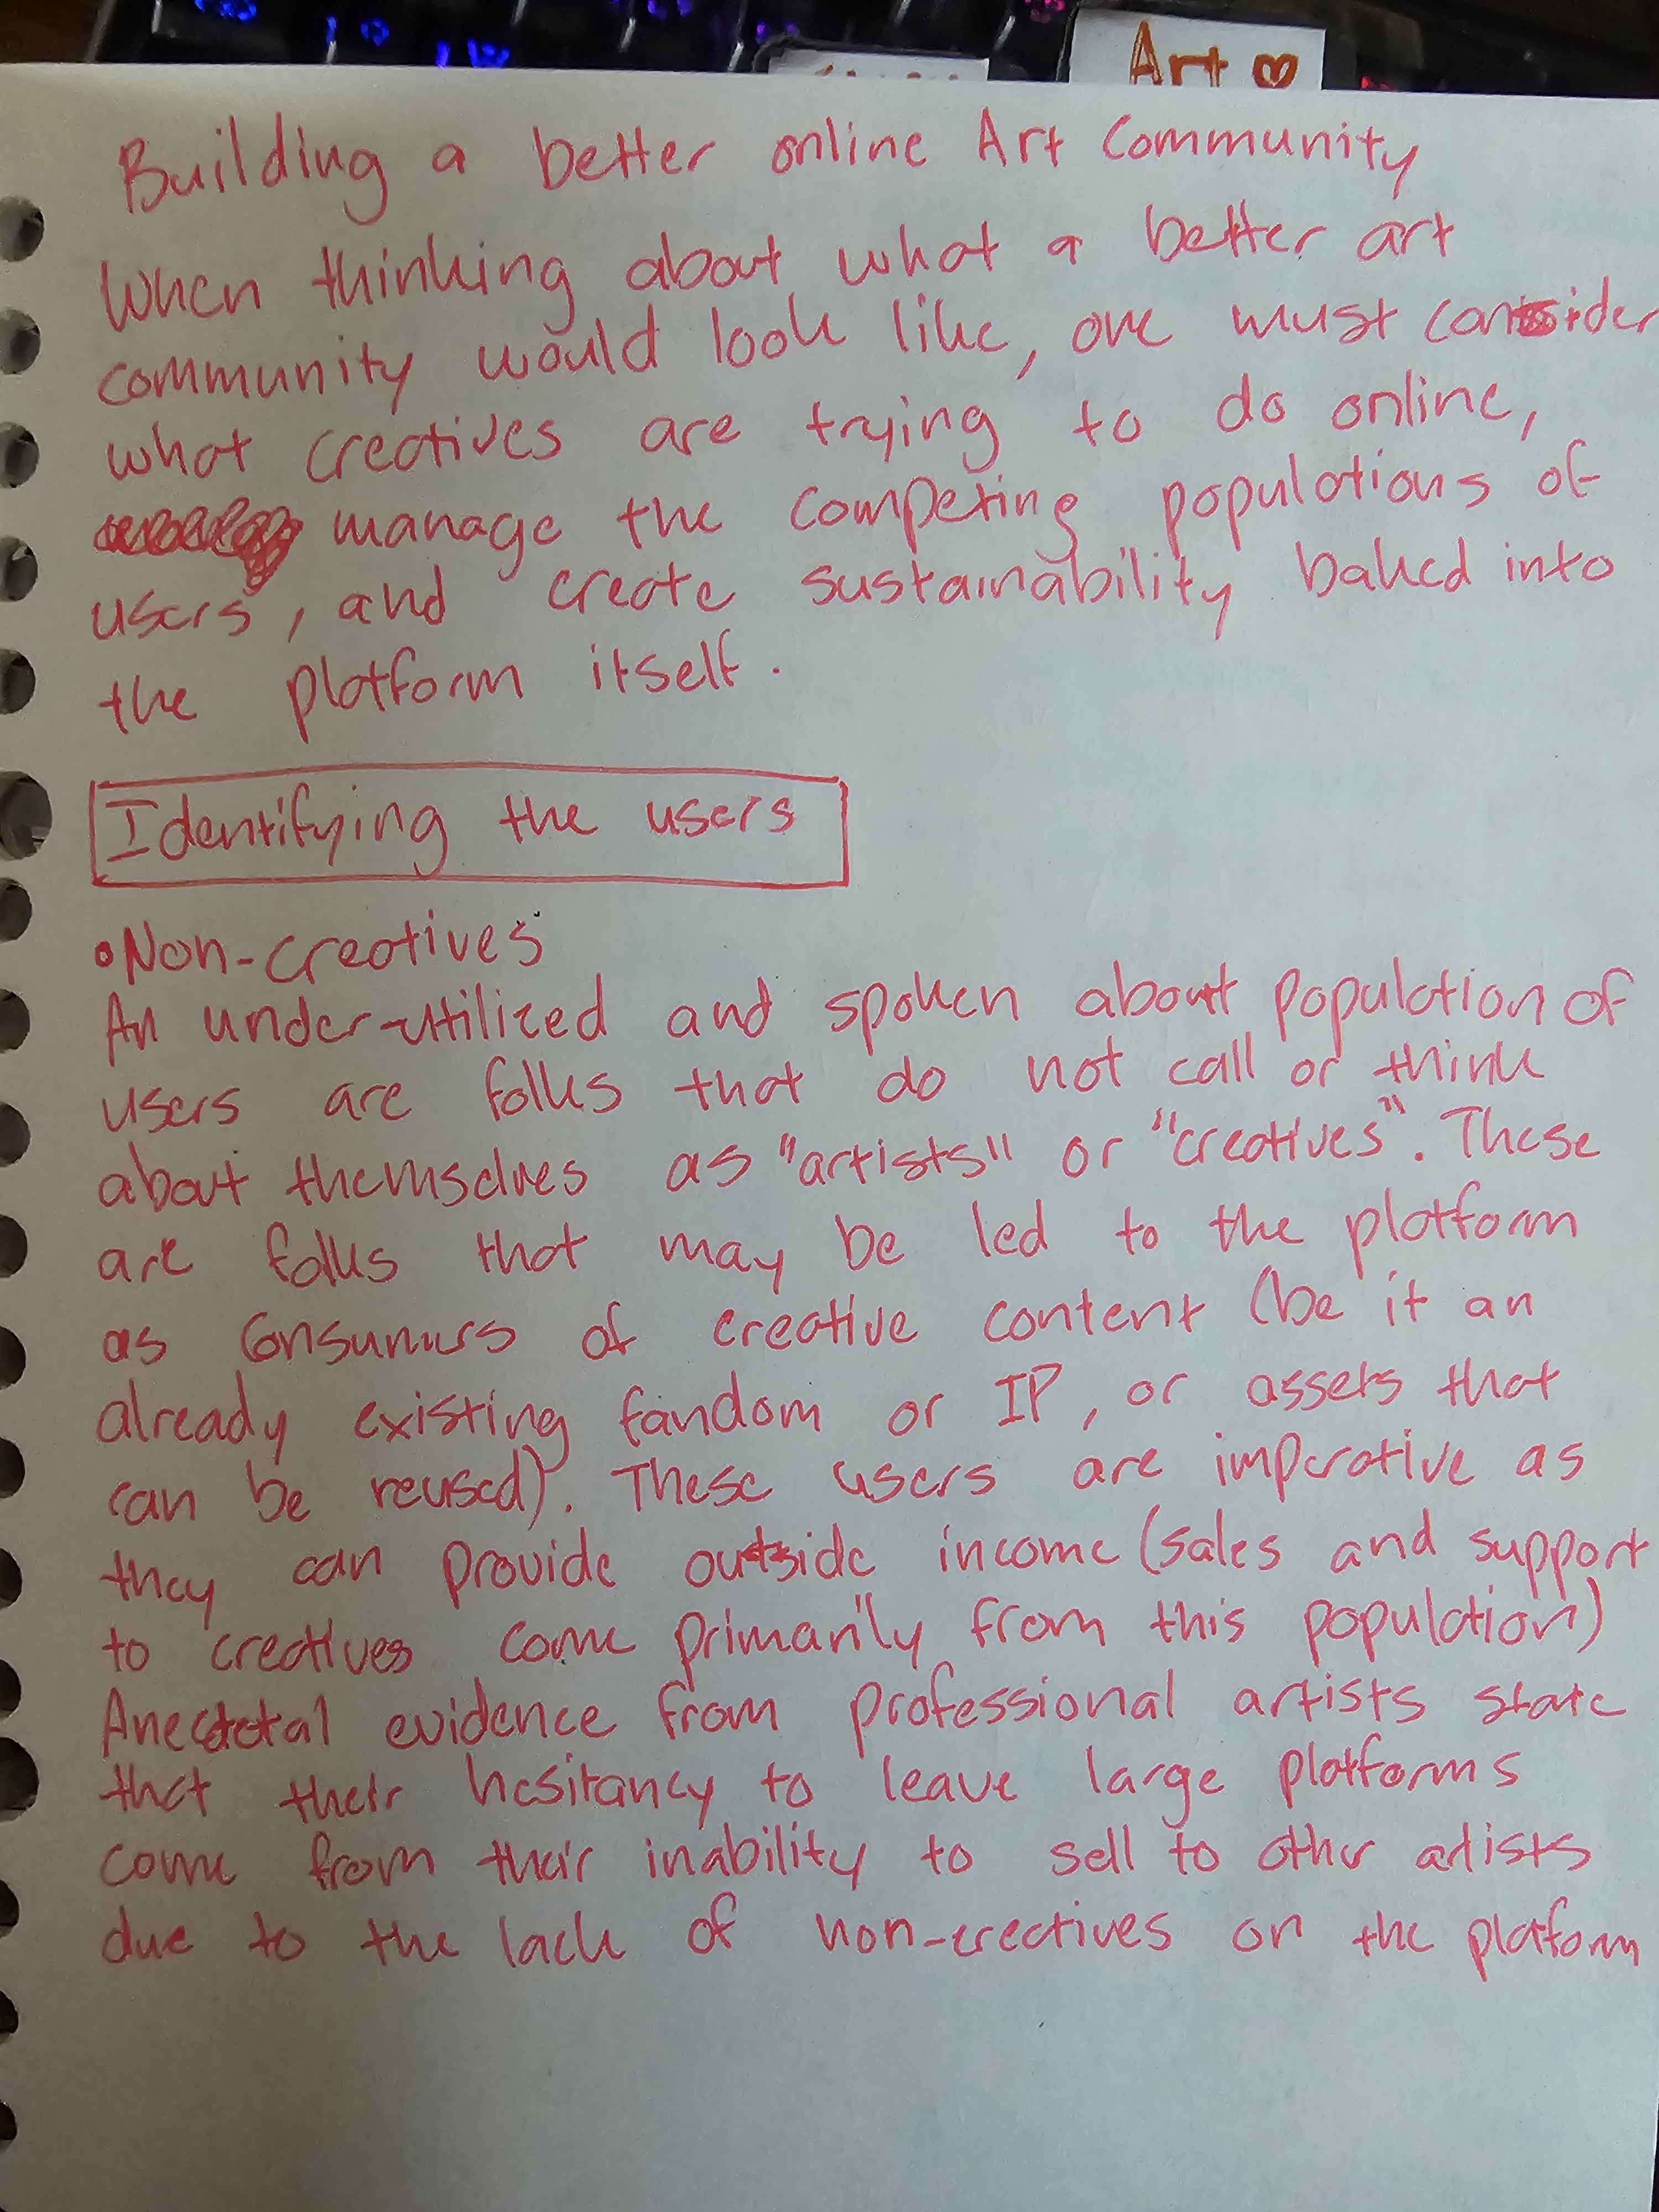 Art ♡
Building a better online Art Community
When thinking about what a better art
community would look like, one must consider
what creatives are trying to do online,
manage the competing populations of
users, and create sustainability baked into
the platform itself.
Identifying the users
•Non-creatives
An under-utilized and spoken about population of
users are folks that do not call or think
about themselves as "artists" or "creatives". These
are folks that may be led to the platform
as consumers of creative content (be it an
already existing fandom or IP, or assets that
can be reused). These users are imperative as
they can provide outside income (sales and support
to creatives come primarily from this population)
Anecdotal evidence from professional artists state
that their hesitancy to leave large platforms
come from their inability to sell to other artists
due to the lack of non-creatives on the platform